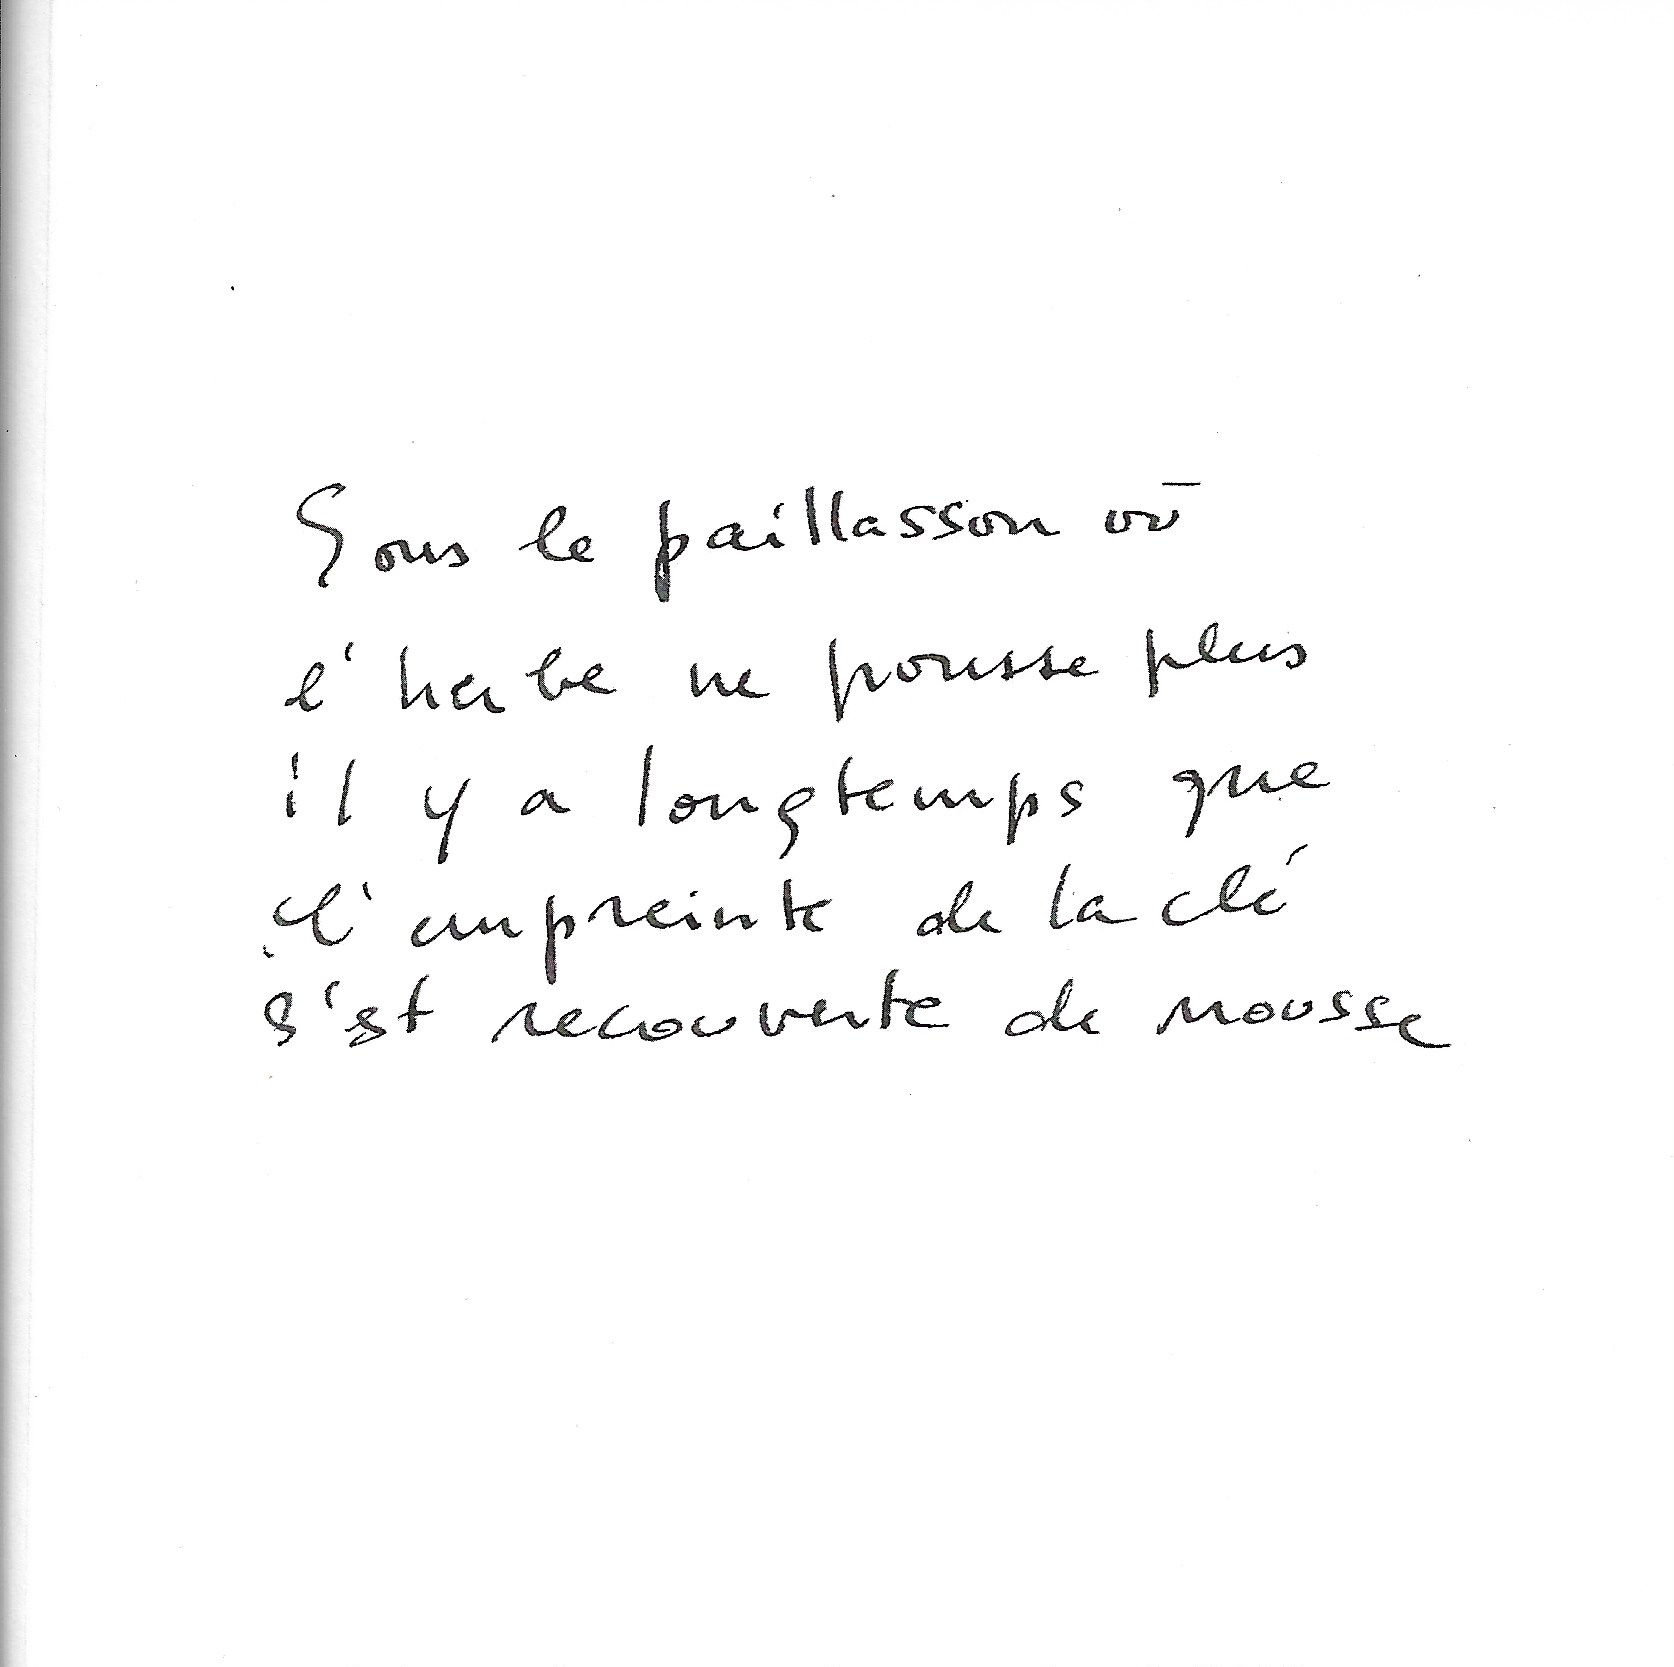 Sous le paillasson où
l'herbe ne pousse plus
il y a longtemps que
l'empreinte de la clé
s'est recouverte de mousse